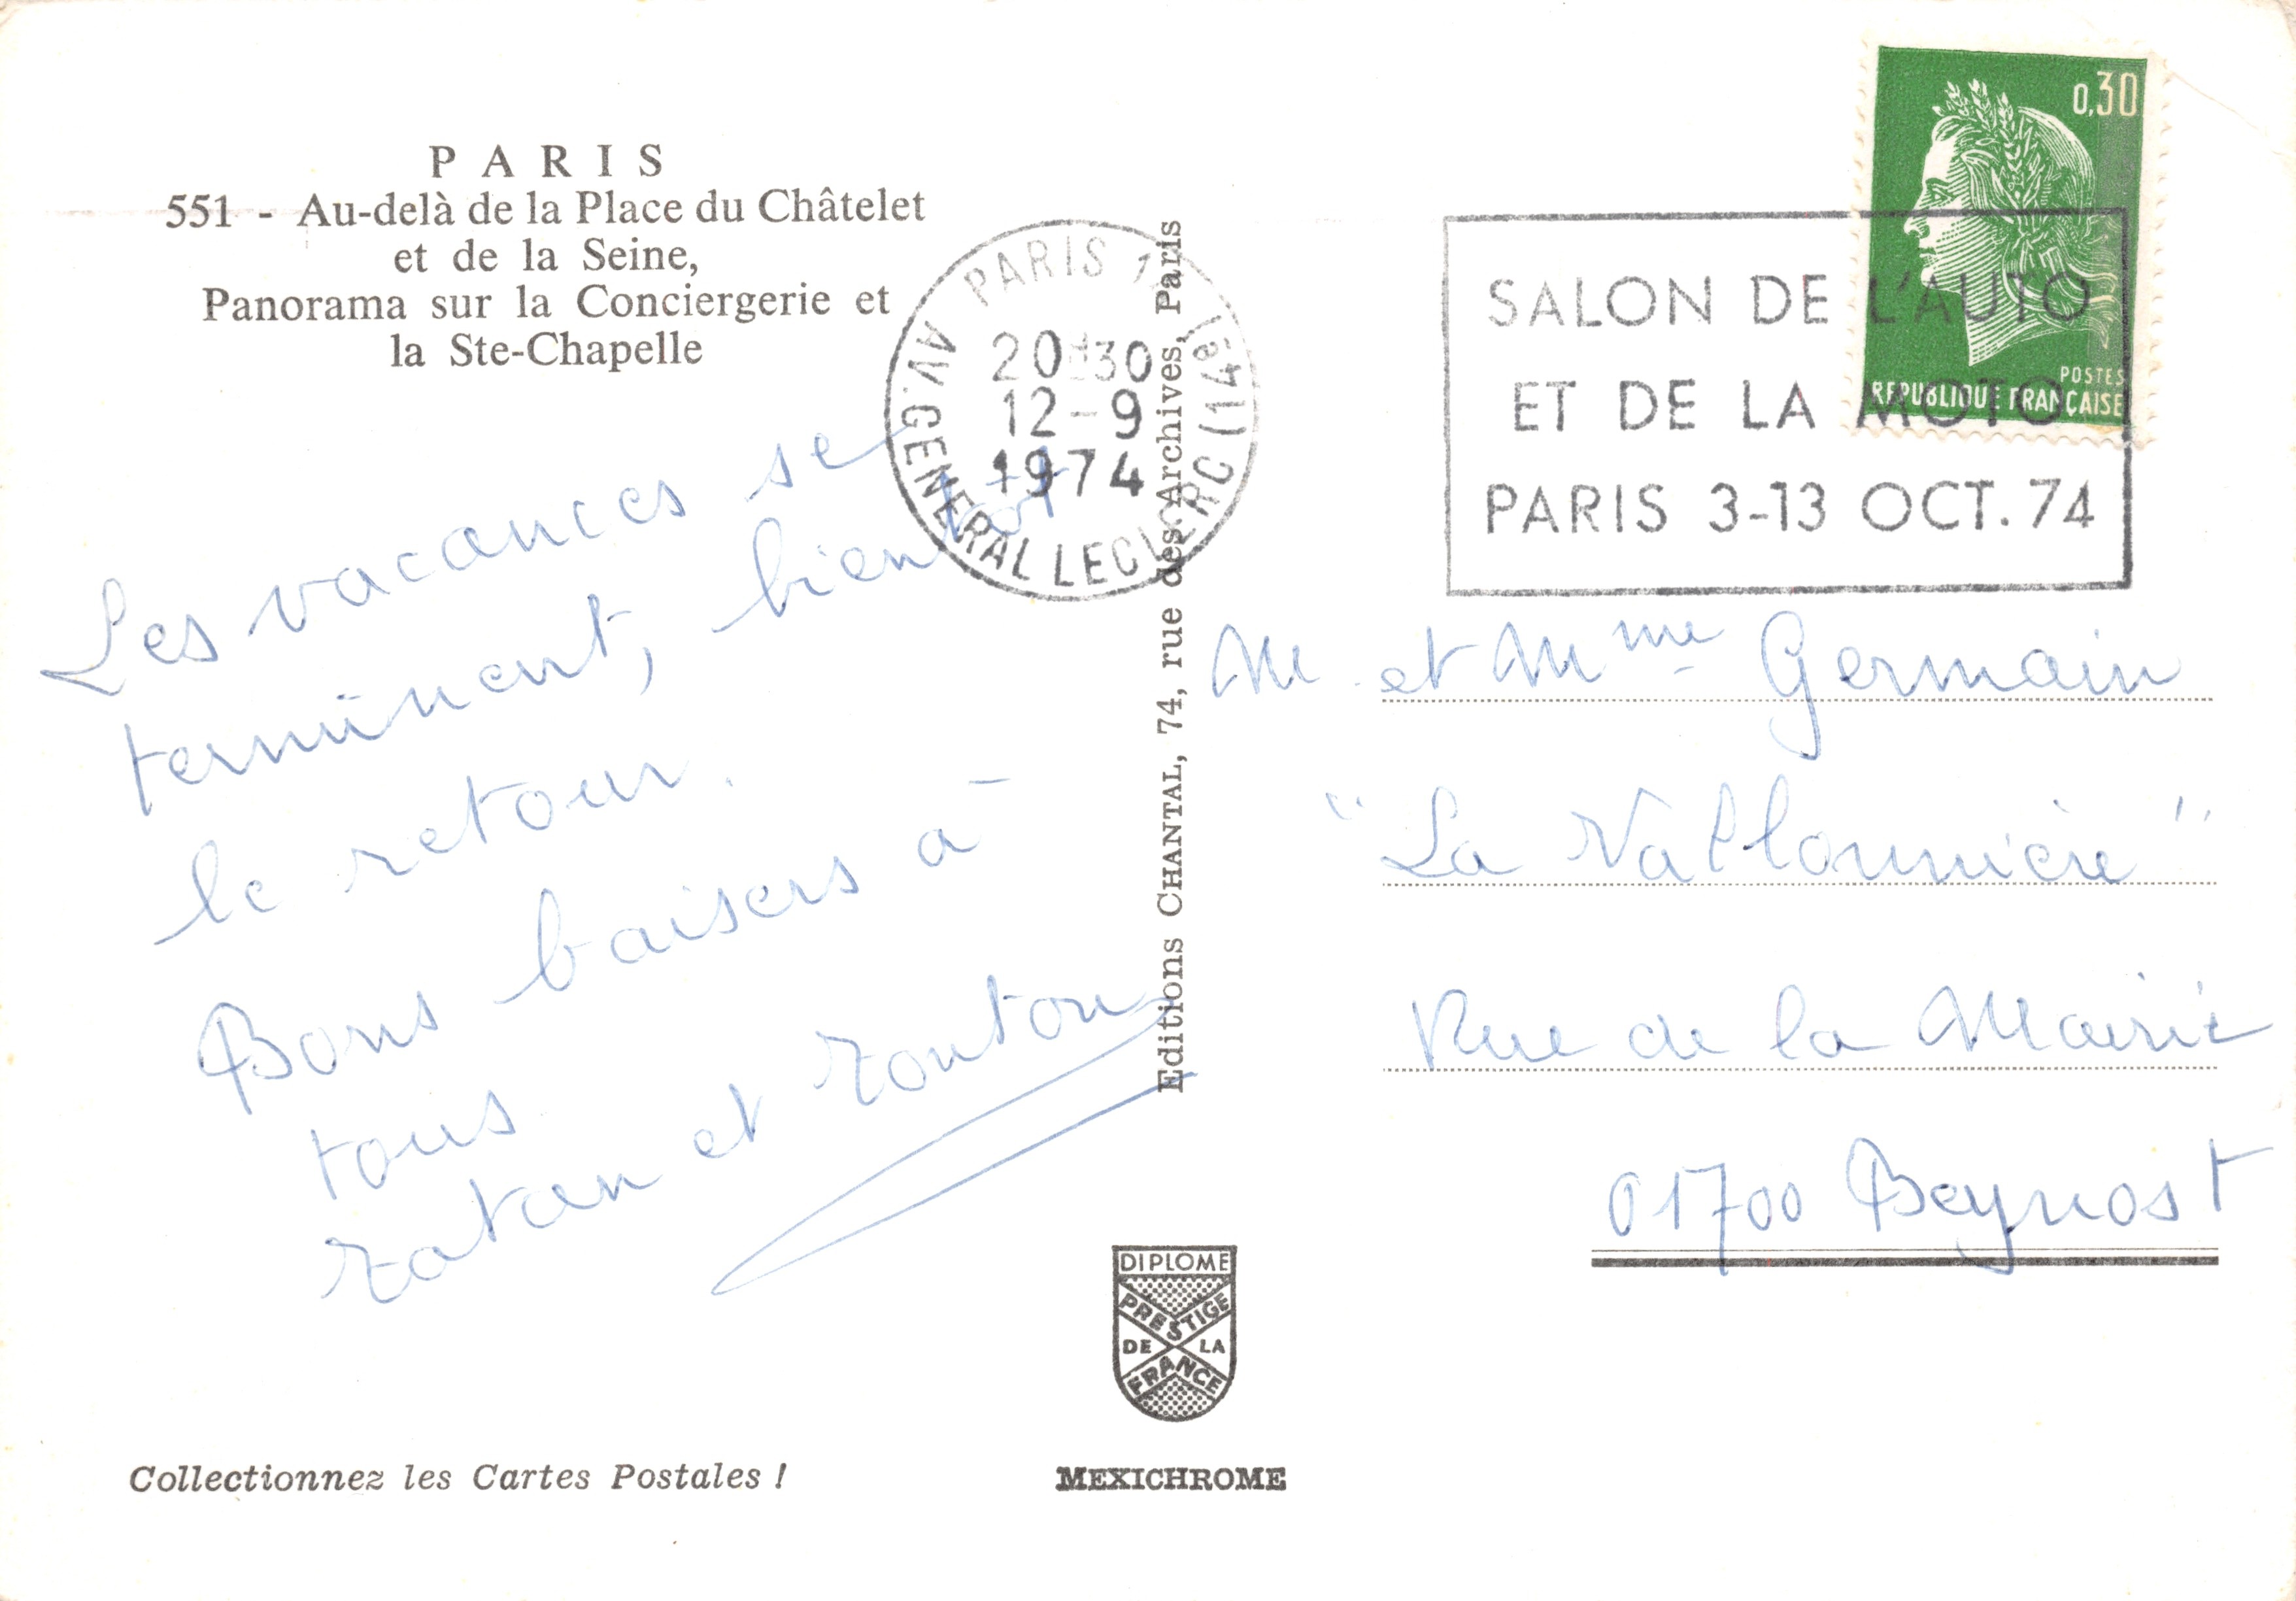 PARIS
551 - Au-delà de la Place du Châtelet
et de la Seine,
Panorama sur la Conciergerie et
la Ste-Chapelle
Les vacances se
terminent, bientôt
le retour.
Bons baisers à
tous
zatan et zouton
Collectionnez les Cartes Postales !
PARIS
AV. GENERAL LECLERC (14e)
20H30
12-9
1974
Editions CHANTAL, 74, rue des Archives, Paris
DIPLOME
PRESTIGE
DE LA
FRANCE
MEXICHROME
0,30
POSTES
REPUBLIQUE FRANÇAISE
SALON DE L'AUTO
ET DE LA MOTO
PARIS 3-13 OCT. 74
M et Mme Germain
"La
Rue de la Mairie
01700 Beynost